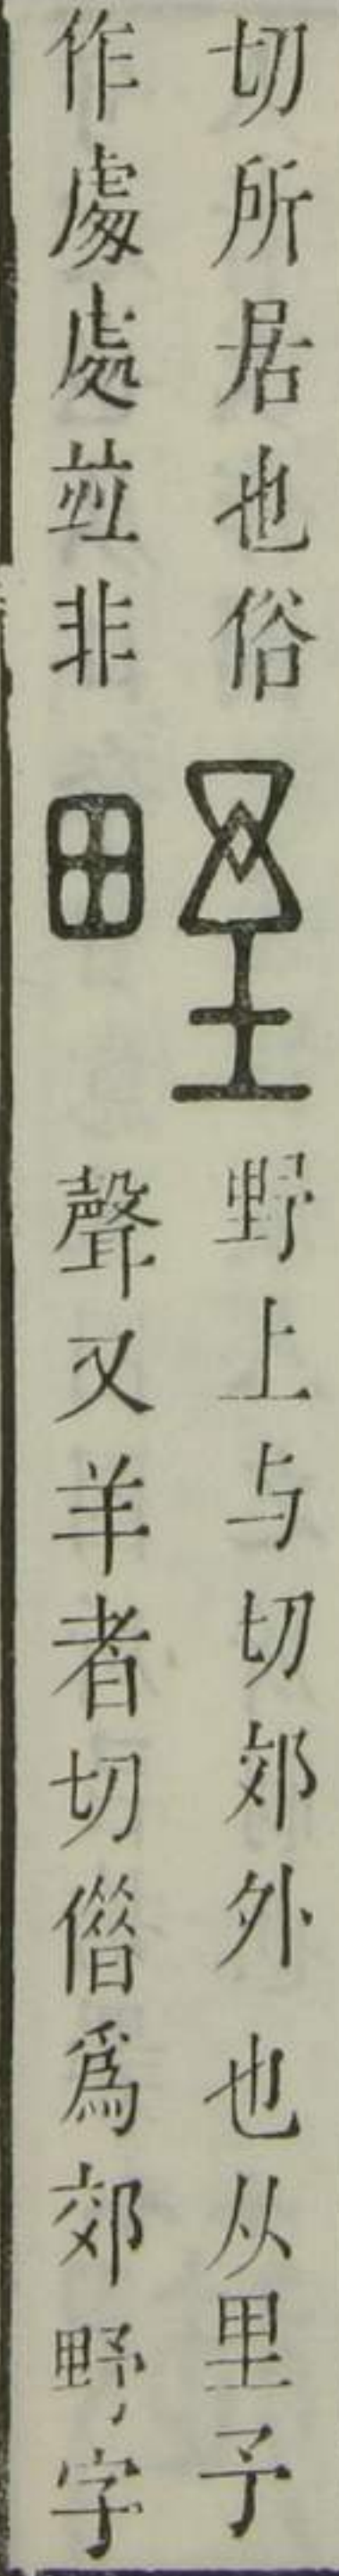 切所居也俗
作處處竝非
野上与切郊外也从里予
聲又羊者切僭爲郊野字